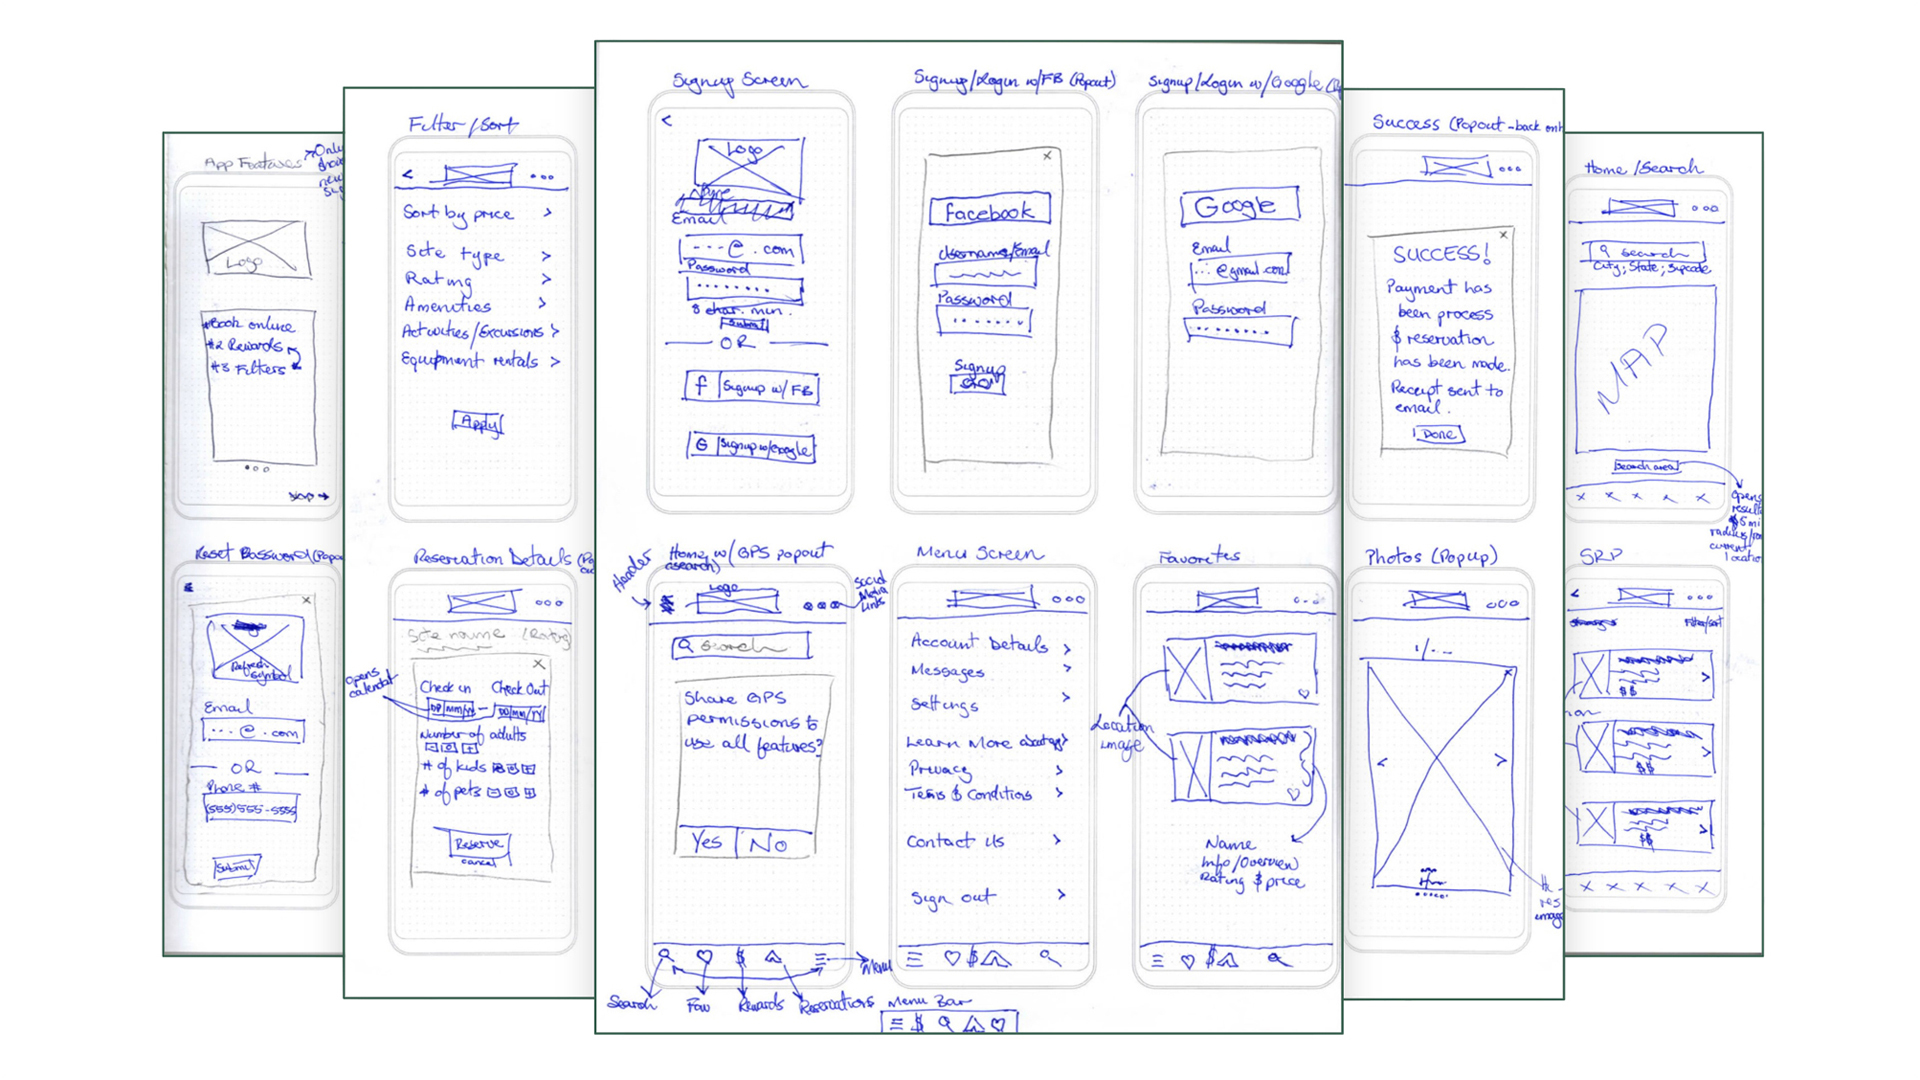 App Features
Only
new
Logo
#Book online
#2 Rewards
#3 Filters
Skip
Reset Password (Popo
Refresh
symbol
Email
...@.com
OR
Phone #
(555)555-5555
Submit
Filter/Sort
<
Sort by price >
Site type >
Rating >
Amenities >
Activities/Excursions >
Equipment rentals >
Apply
Reservation Details (Po
Site name (Rating)
X
Opens
calendar
Check in Check Out
DD/MM/YY - DD/MM/YY
Number of adults
# of kids
# of pets
Reserve
cancel
Signup Screen
<
Logo
Name
Email
---@.com
Password
8 char. min.
Submit
OR
f Signup w/ FB
G Signup w/Google
Signup/Login w/FB (Popout)
X
Facebook
Username/Email
Password
Signup
Signup/Login w/Google (P
Google
Email
@gmail.com
Password
Home w/ GPS popout
(search)
Header
Logo
Social
Media
Links
Search
Share GPS
permissions to
use all features?
Yes No
Menu
Search Fav Rewards Reservations
Menu Screen
Account Details >
Messages >
Settings >
Learn More about app >
Privacy >
Terms & Conditions >
Contact Us >
Sign out >
Menu Bar
Favorites
Location
image
Name
Info/Overview
Rating & price
Success (Popout - back ont
X
SUCCESS!
Payment has
been process
& reservation
has been made.
Receipt sent to
email.
Done
Photos (Popup)
1/...
X
< >
image
Home /Search
Search
City, State, Zipcode
MAP
Search area
Opens
result
5 mi
radius
current
location
SRP
<
Filter/Sort
$$
$$
$$